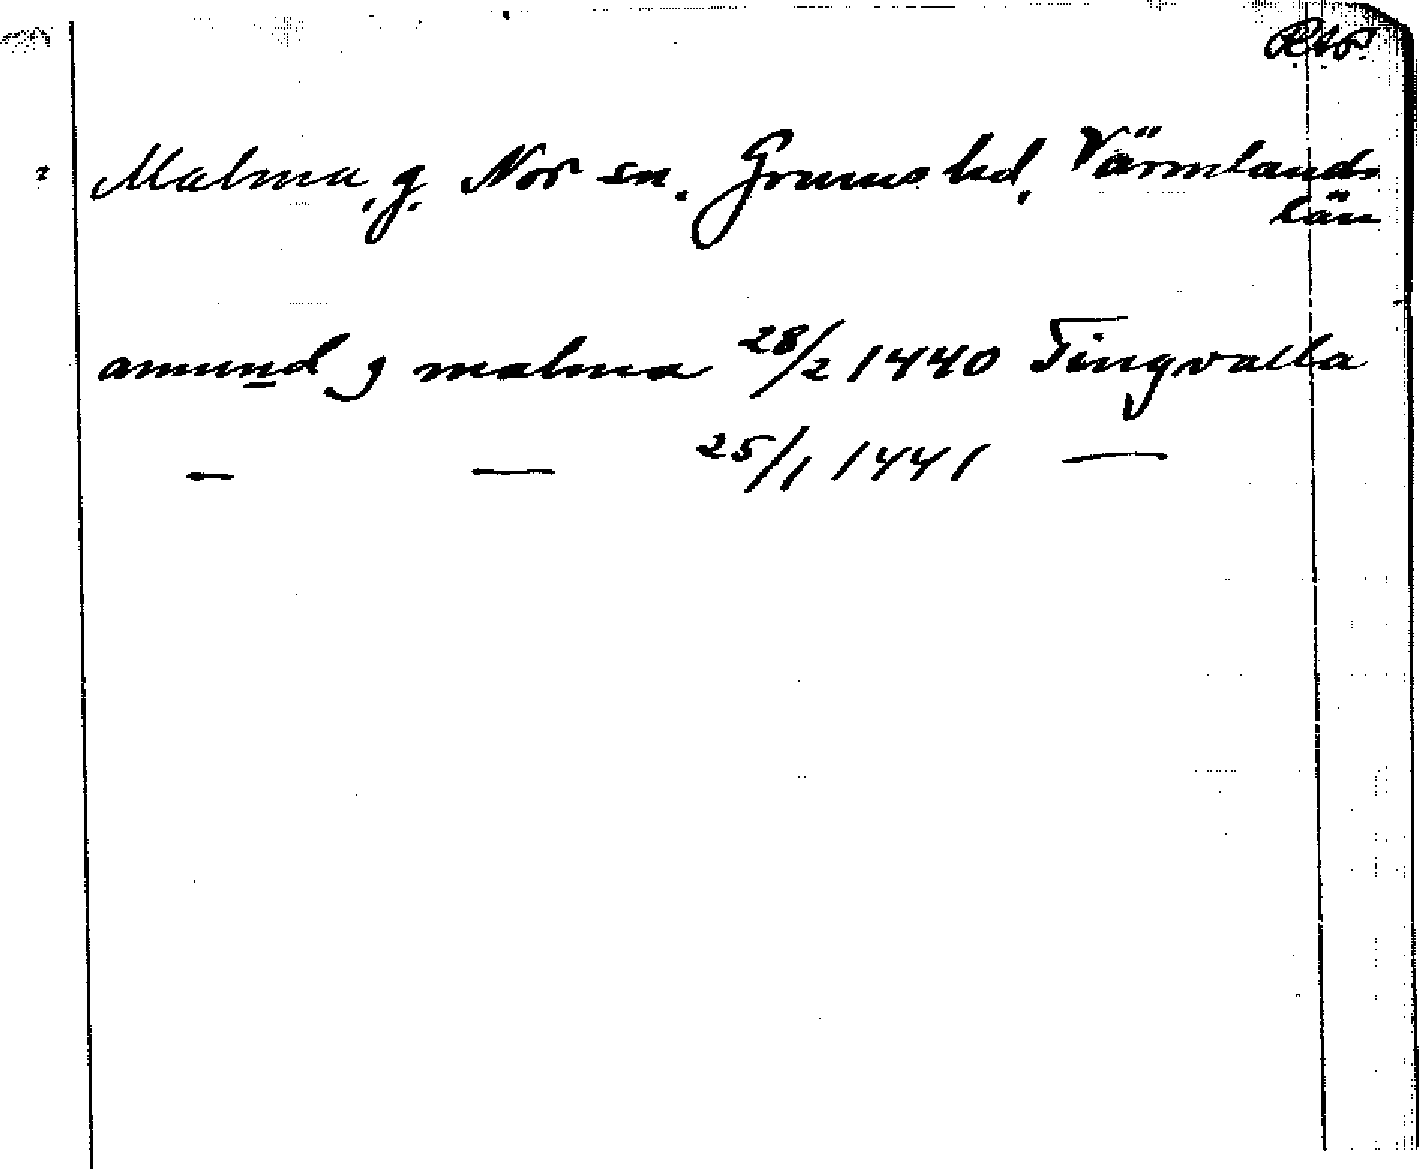 Malma, g. Nor sn. Grums hd, Värmlands
län
amund j malma 28/2 1440 Tingvalla
— — 25/1 1441 —